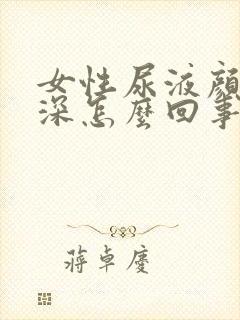 女性尿液顏
深怎麼回事
蔣卓慶